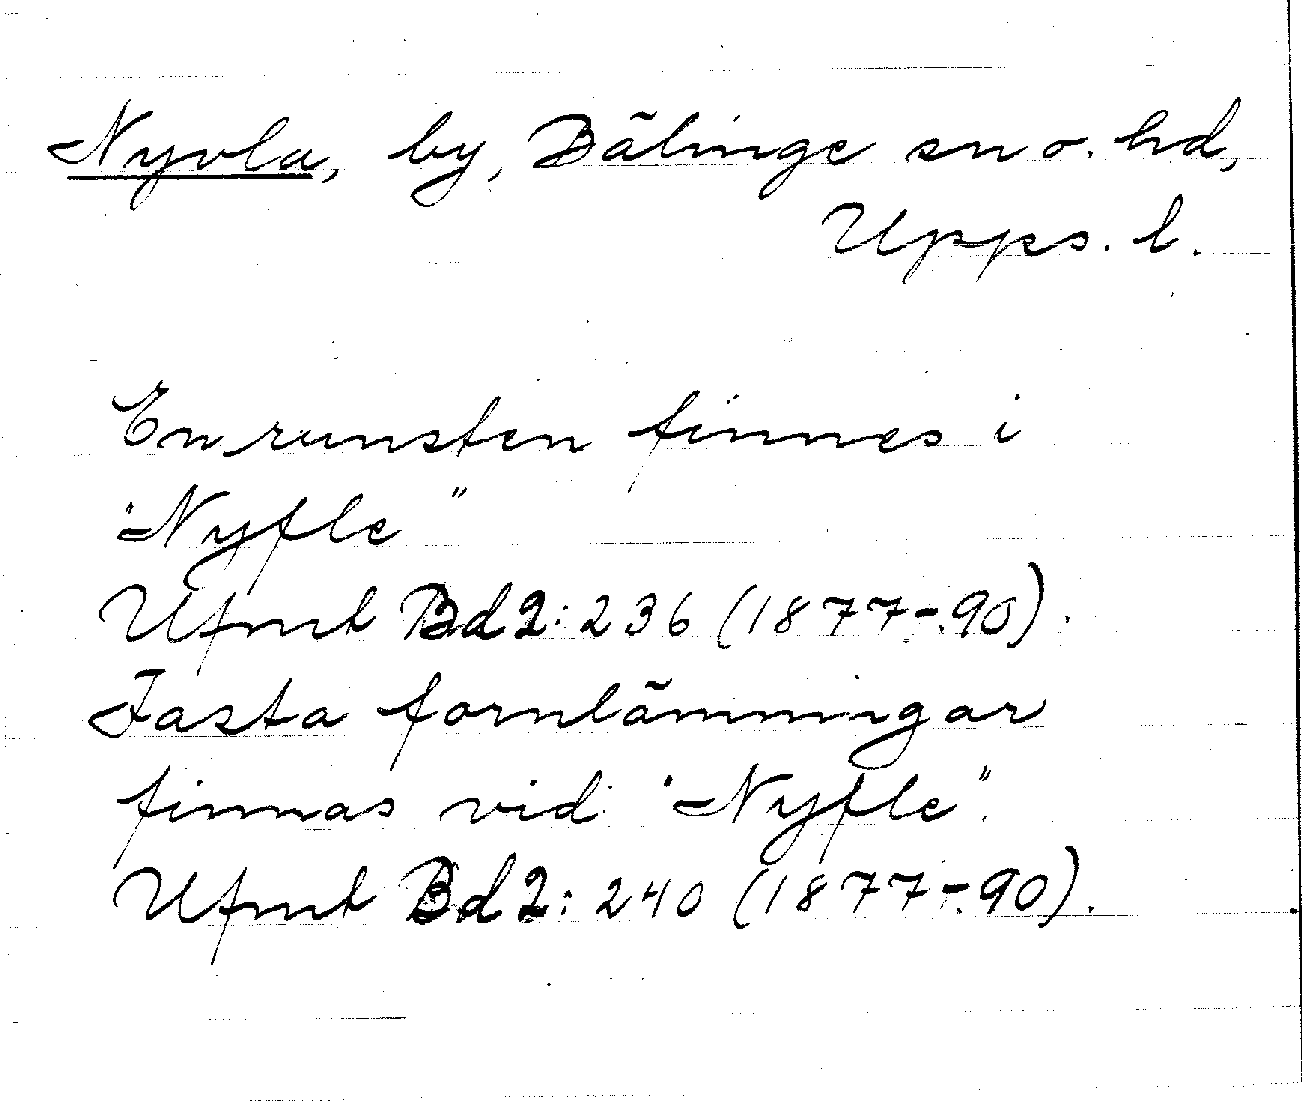 Nyvla, by, Bälinge sn o. hd,
Upps. l.
En runsten finnes i
"Nyfle"
Ufmt Bd 2: 236 (1877-90).
Fasta fornlämningar
finnas vid "Nyfle".
Ufmt Bd 2: 240 (1877-90).